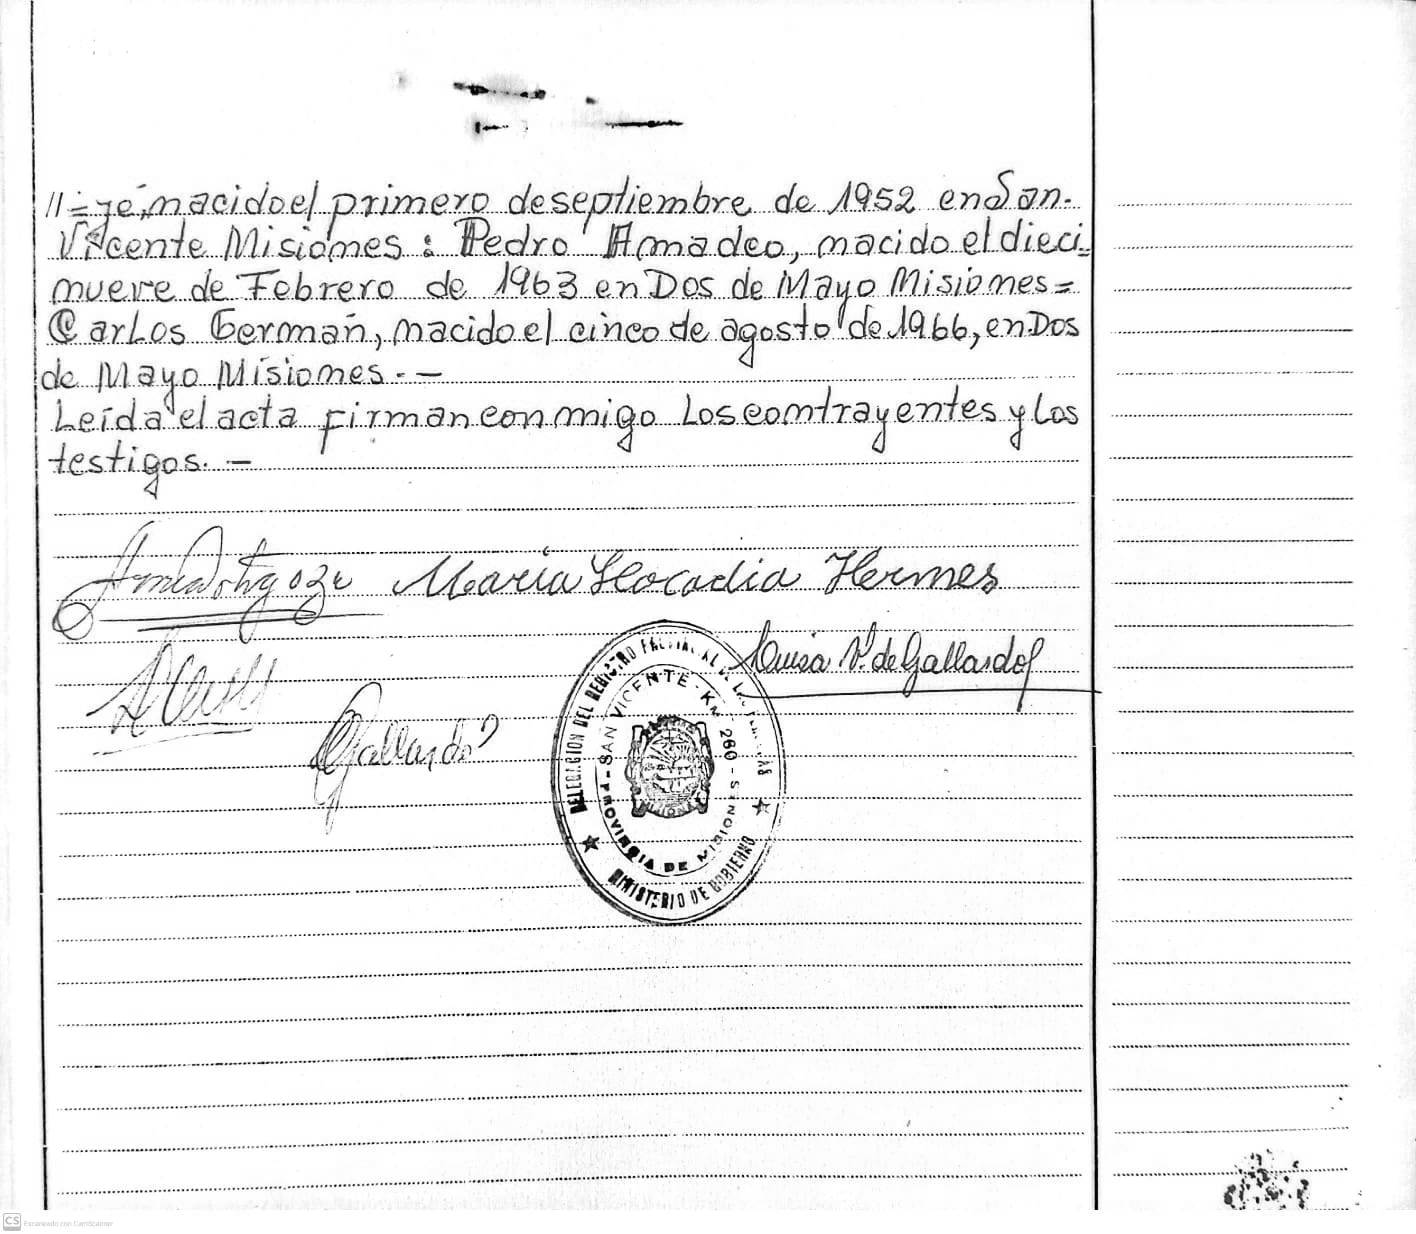 //=gé, nacido el primero de septiembre de 1952 en San-
Vicente Misiones : Pedro Amadeo, nacido el dieci-
nueve de Febrero de 1963 en Dos de Mayo Misiones=
Carlos Germań, nacido el cinco de agosto de 1966, en Dos
de Mayo Misiones.-
Leída el acta firman conmigo los contrayentes y los
testigos.-
María Leocadia Hermes
Luisa V. de Gallardo
Gallardo
DELEGACION DEL REGISTRO PROVINCIAL DE LAS PERSONAS
SAN VICENTE - KM 260 -
PROVINCIA DE MISIONES
MINISTERIO DE GOBIERNO
CS Escaneado con CamScanner